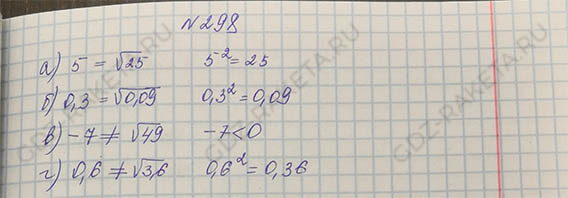 №298
а) 5 = √25 5² = 25
б) 0,3 = √0,09 0,3² = 0,09
в) -7 ≠ √49 -7 < 0
г) 0,6 ≠ √3,6 0,6² = 0,36
GDZ-RAKETA.RU
GDZ-RAKETA.RU
GDZ-RAKETA.RU